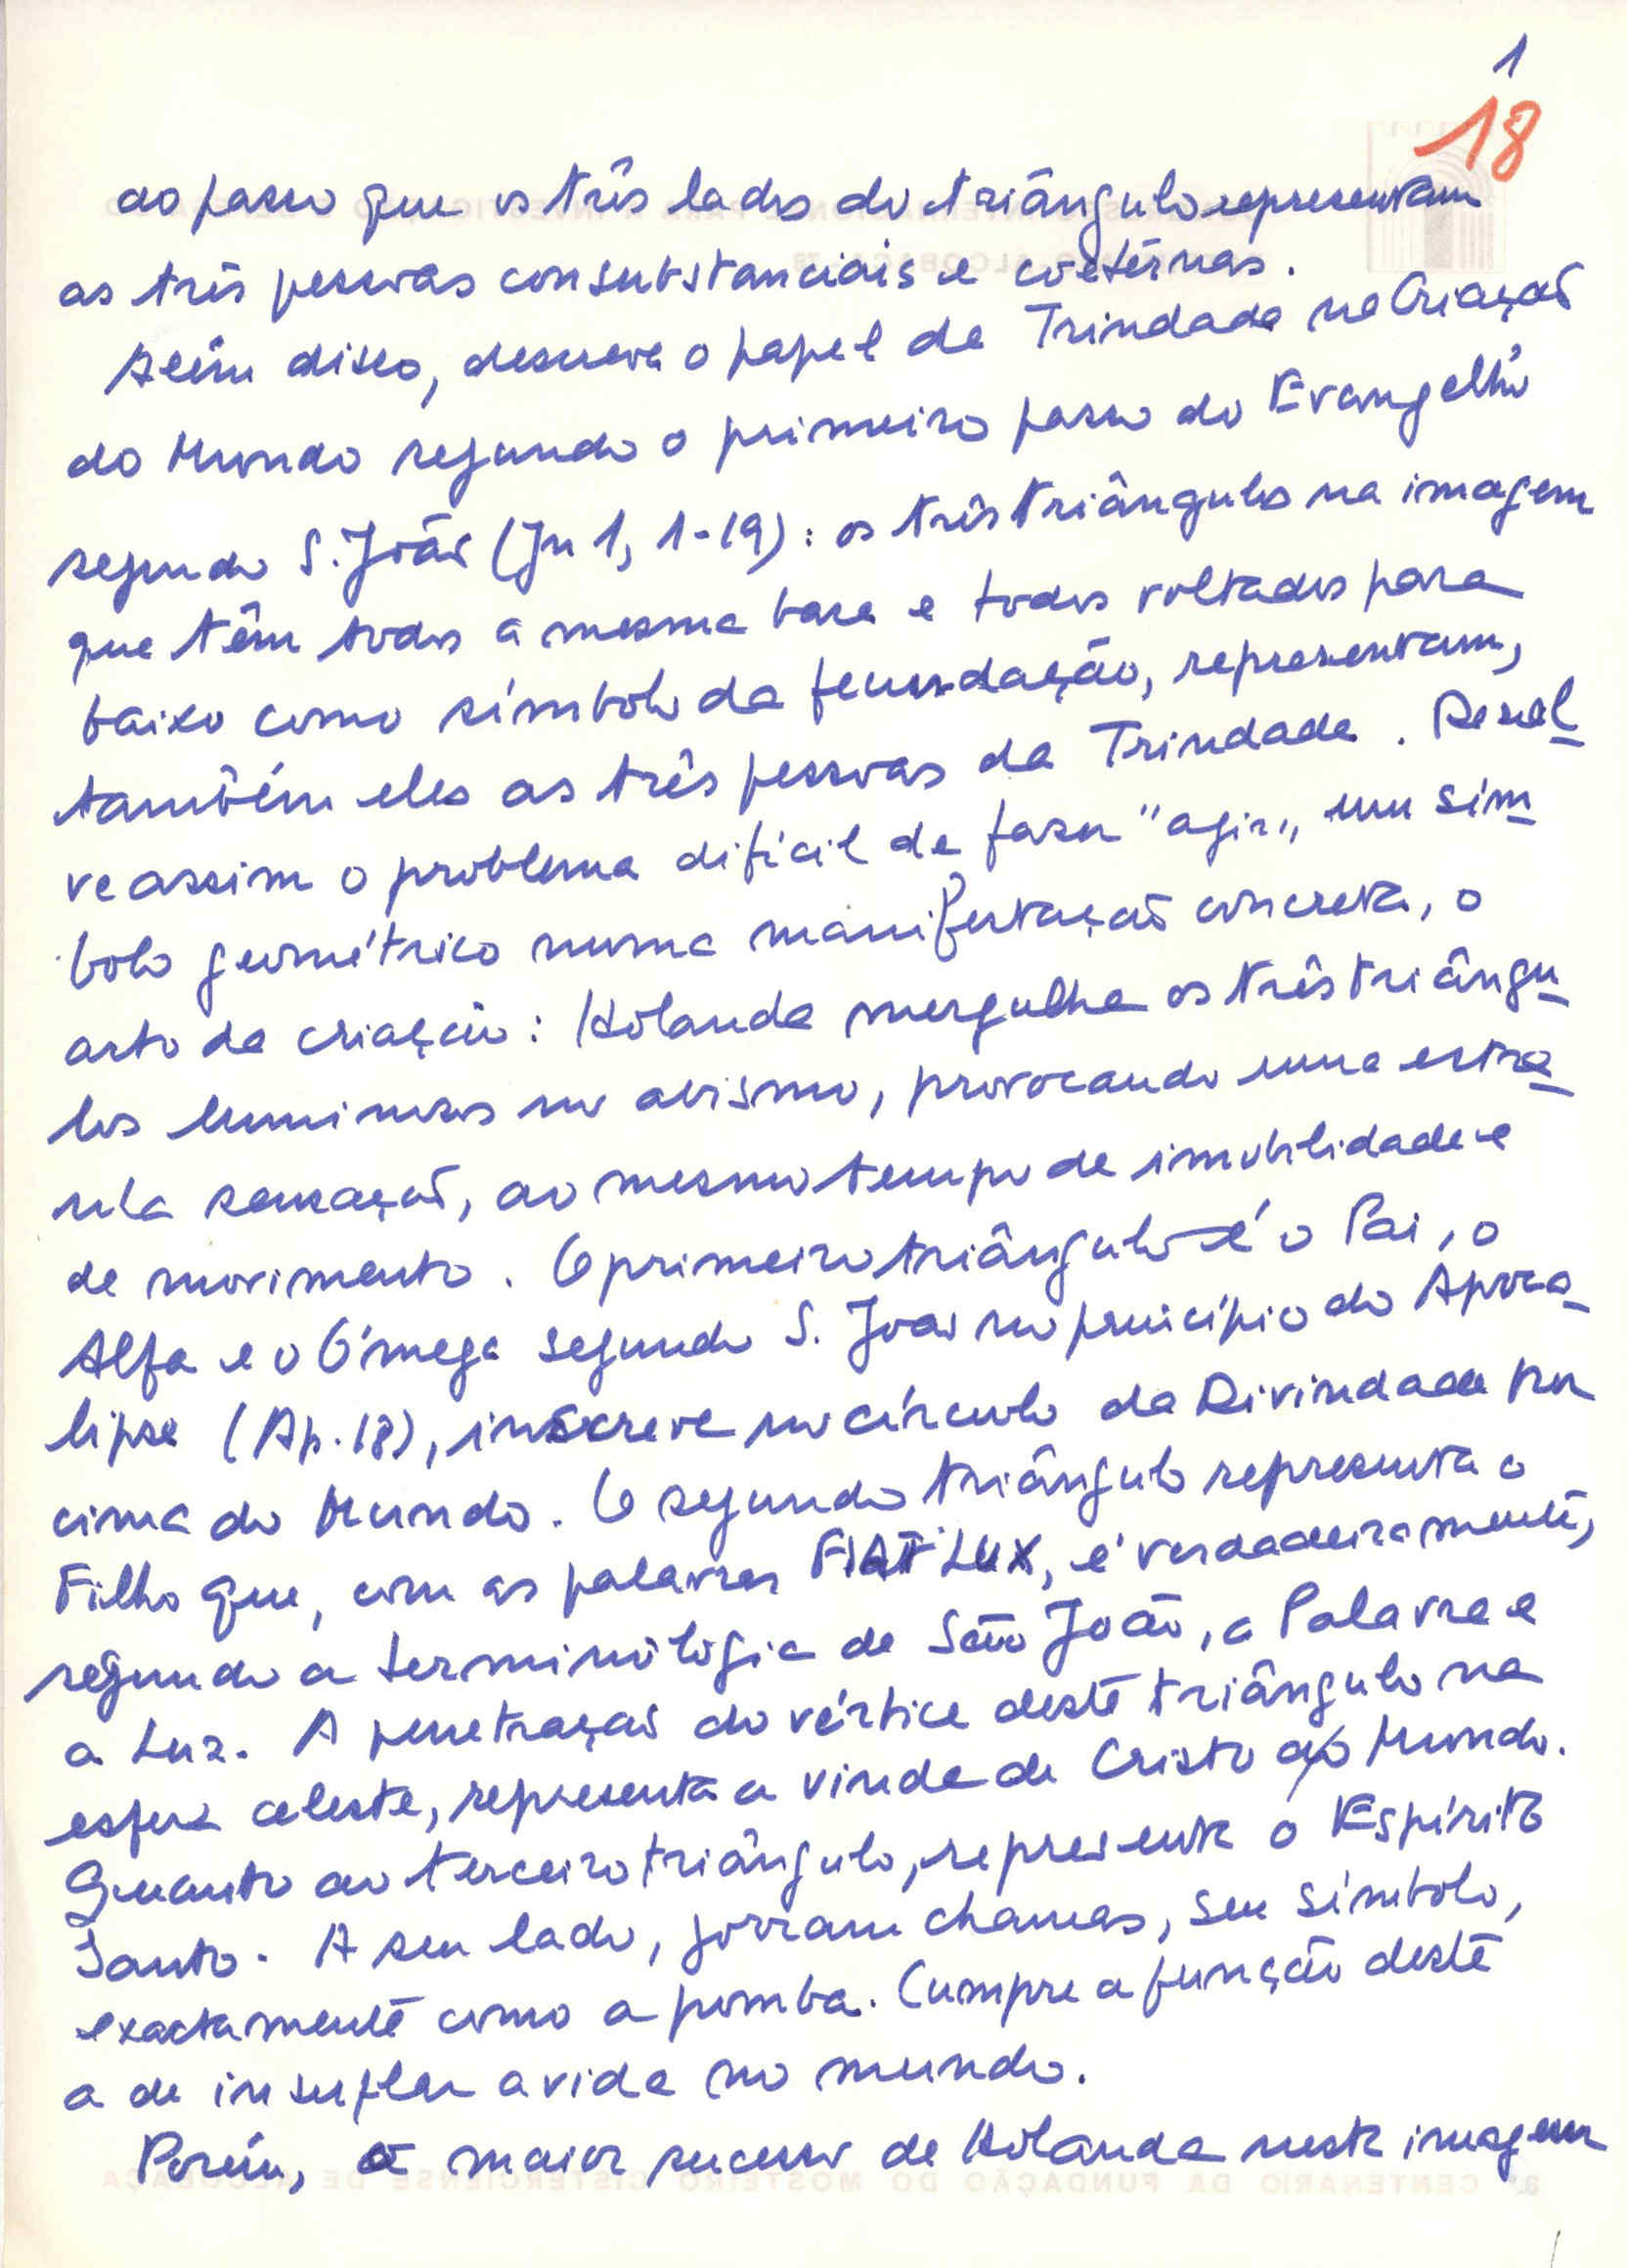 1
18
ao passo que os três lados do triângulo representam
as três pessoas consubstanciais e coetérnas.
Além disso, descreve o papel da Trindade na Criação
do Mundo segundo o primeiro passo do Evangelho
segundo S. João (Jn 1, 1-19): os três triângulos na imagem
que têm todos a mesma base e todos voltados para
baixo como símbolo da fecundação, representam,
também eles as três pessoas da Trindade. Resol
ve assim o problema difícil de fazer "agir" um sím
bolo geométrico numa manifestação concreta, o
acto da criação: Holanda mergulha os três triângu
los luminosos no abismo, provocando uma estra
nha sensação, ao mesmo tempo de imobilidade e
de movimento. O primeiro triângulo é o Pai, o
Alfa e o Ómega segundo S. João no princípio do Apoca
lipse (Ap. 18), inscreve no círculo da Divindade por
cima do Mundo. O segundo triângulo representa o
Filho que, com as palavras FIAT LUX, é verdadeiramente,
segundo a terminologia de São João, a Palavra e
a Luz. A penetração do vértice deste triângulo na
esfera celeste, representa a vinda de Cristo ao Mundo.
Quanto ao terceiro triângulo, representa o Espírito
Santo. A seu lado, jorram chamas, seu símbolo,
exactamente como a pomba. Cumpre a função deste
a de insuflar a vida no mundo.
Porém, o maior sucesso de Holanda nesta imagem